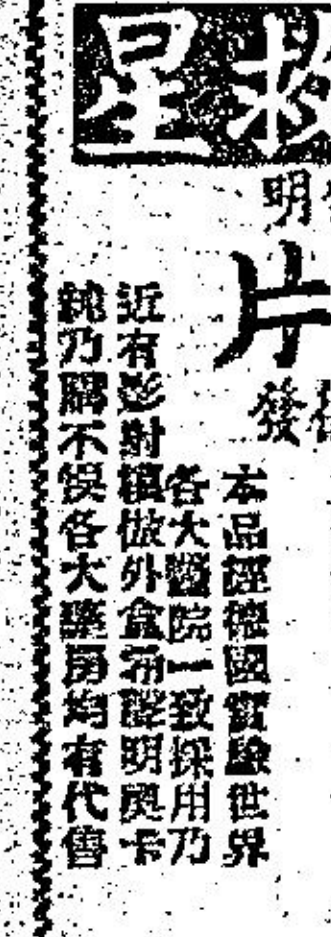 星
明
片
發
本品經德國實驗世界
各大醫院一致採用乃
近有影射模倣外盒希認明奧卡
純乃不悞各大藥房均有代售